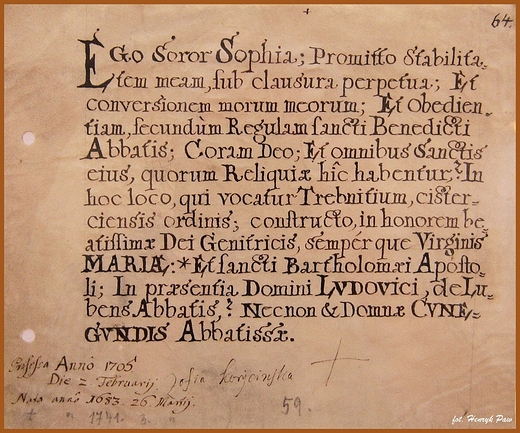 64.
EGo Soror Sophia; Promitto Stabilita-
tem meam, sub clausura perpetua; Et
conversionem morum meorum; Et obedien-
tiam, secundùm Regulam sancti Benedicti
Abbatis; Coram Deo; Et omnibus Sanctis
eius, quorum Reliquiæ hîc habentur; In
hoc loco, qui vocatur Trebnitium, cister-
ciensis ordinis; constructo, in honorem be-
atissimæ Dei Genitricis, sempérque Virginis
MARIÆ:* Et sancti Bartholomæi Aposto-
li; In præsentia Domini LVDOVICI, de Lu-
bens Abbatis; Necnon & Domnæ CVNE-
GVNDIS Abbatissæ.
Professa Anno 1705
Die 2 Februarij Zofia
Nata anno 1683. 26 Martij
+ " 1741. 3. "
59.
fot. Henryk Paw